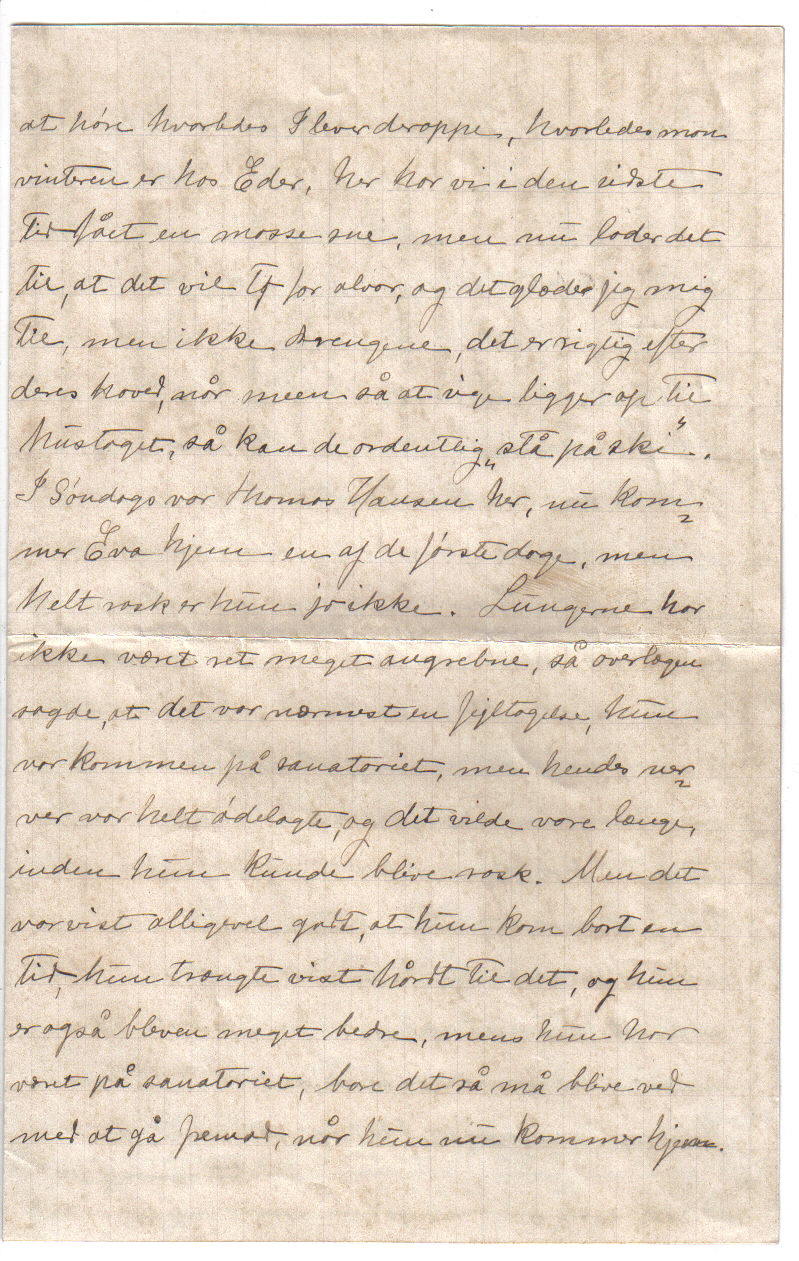 at høre hvorledes I lever deroppe, hvorledes mon
vinteren er hos Eder, her har vi i den sidste
tid fået en masse sne, men nu lader det
til, at det vil tø for alvor, og det glæder jeg mig
til, men ikke drengene, det er rigtig efter
deres hoved, når sneen så at sige ligger op til
hustaget, så kan de ordentlig „stå på ski“.
I Søndags var Thomas Hansen her, nu kom=
mer Eva hjem en af de første dage, men
helt rask er hun jo ikke. Lungerne har
ikke været ret meget angrebne, så overlægen
sagde, at det var nærmest en fejltagelse, hun
var kommen på sanatoriet, men hendes ner=
ver var helt ødelagte, og det vilde vare længe,
inden hun kunde blive rask. Men det
var vist alligevel godt, at hun kom bort en
tid, hun trængte vist hårdt til det, og hun
er også bleven meget bedre, mens hun har
været på sanatoriet, bare det så må blive ved
med at gå fremad, når hun nu kommer hjem.